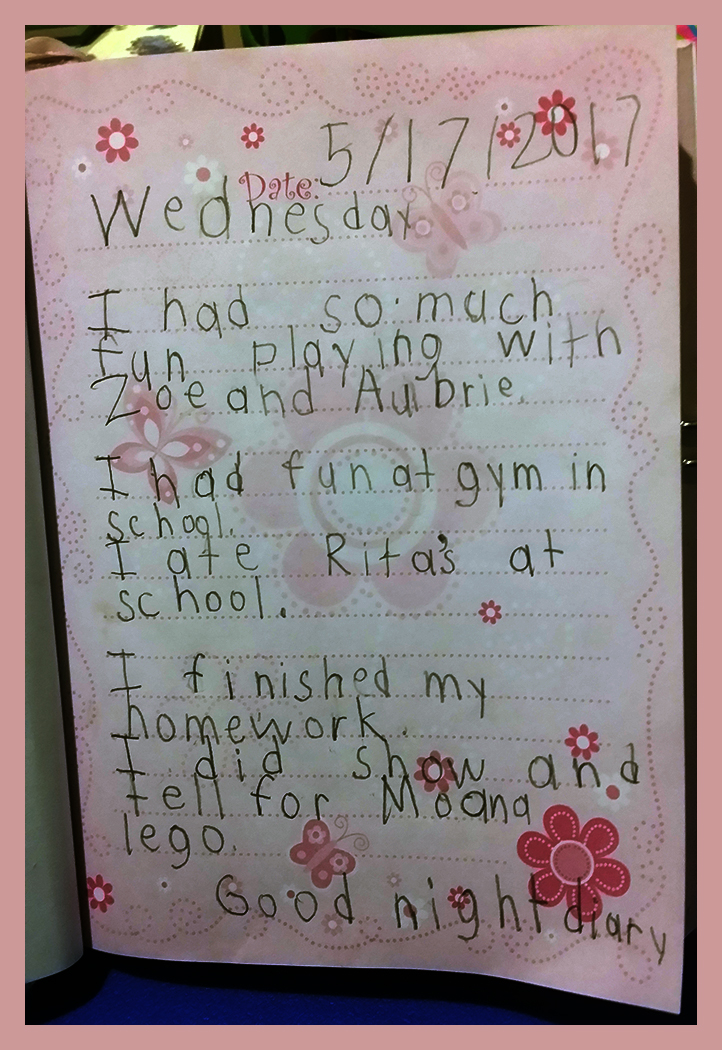 Date: 5/17/2017
Wednesday
I had so much
fun playing with
Zoe and Aubrie.
I had fun at gym in
school.
I ate Rita's at
school.
I finished my
homework.
I did show and
tell for Moana
lego.
Good night diary